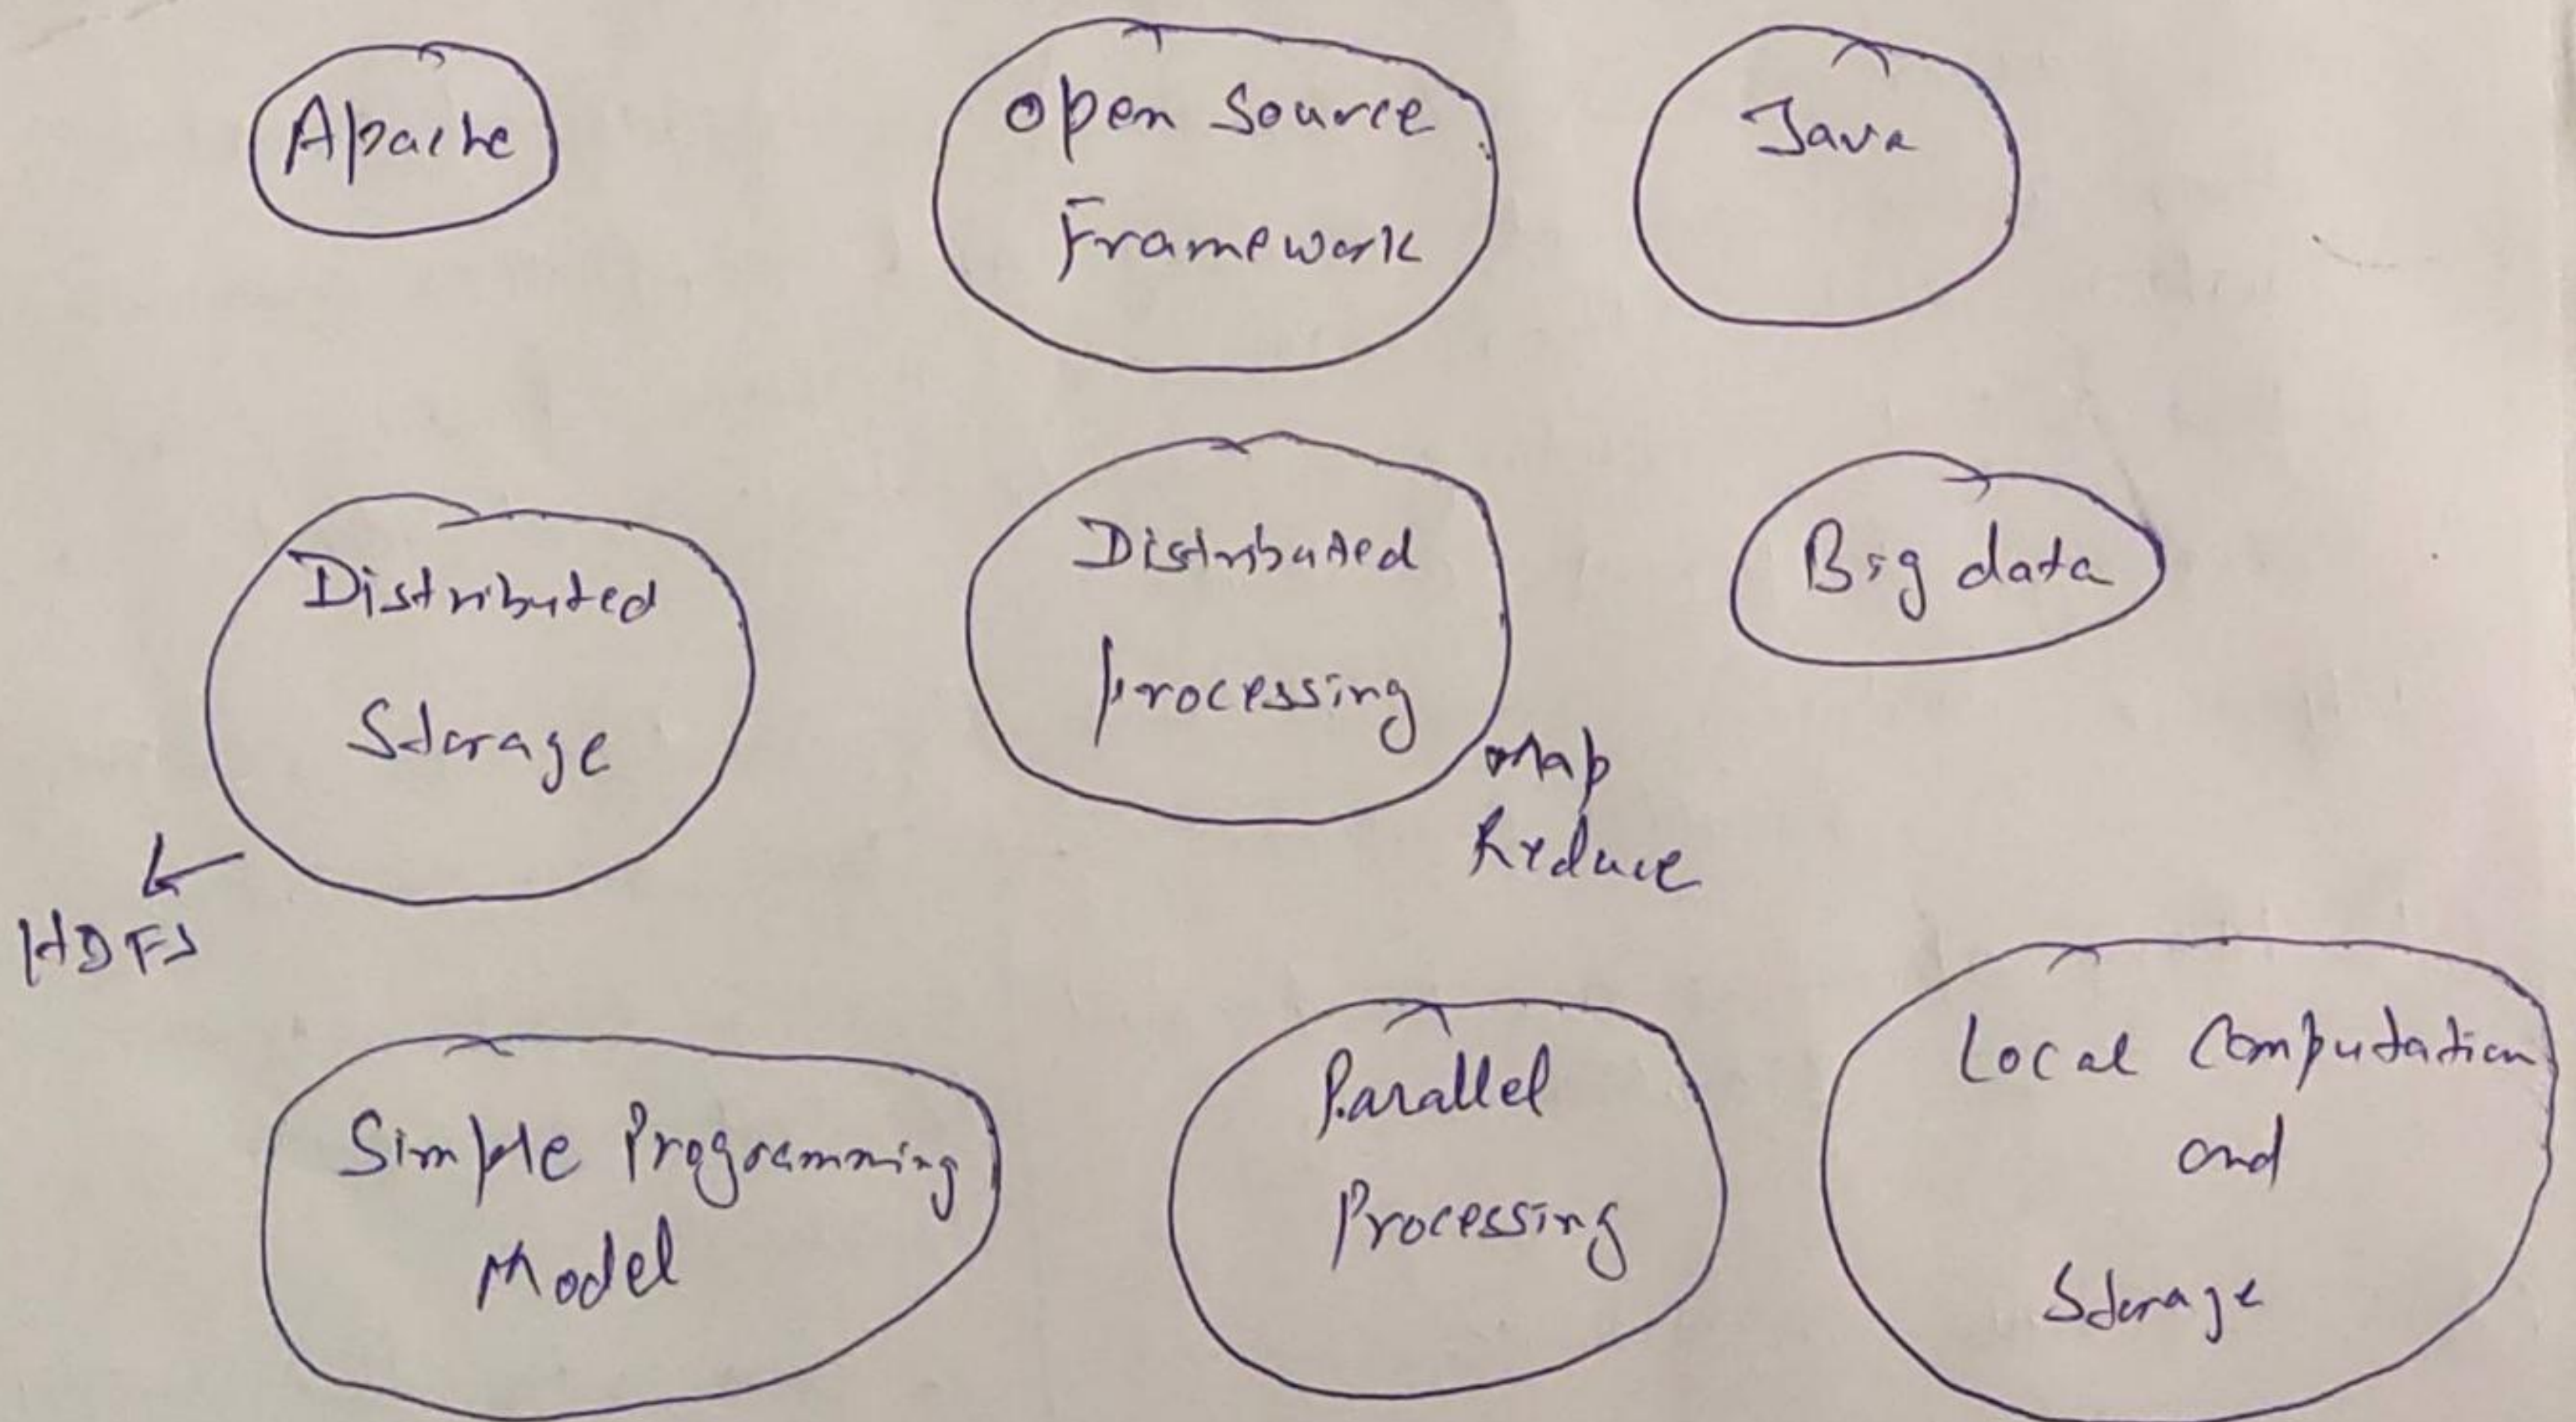 Apache
Open Source
Framework
Java
Distributed
Storage
HDFS
Distributed
Processing
Map
Reduce
Big data
Simple Programming
Model
Parallel
Processing
Local Computation
and
Storage